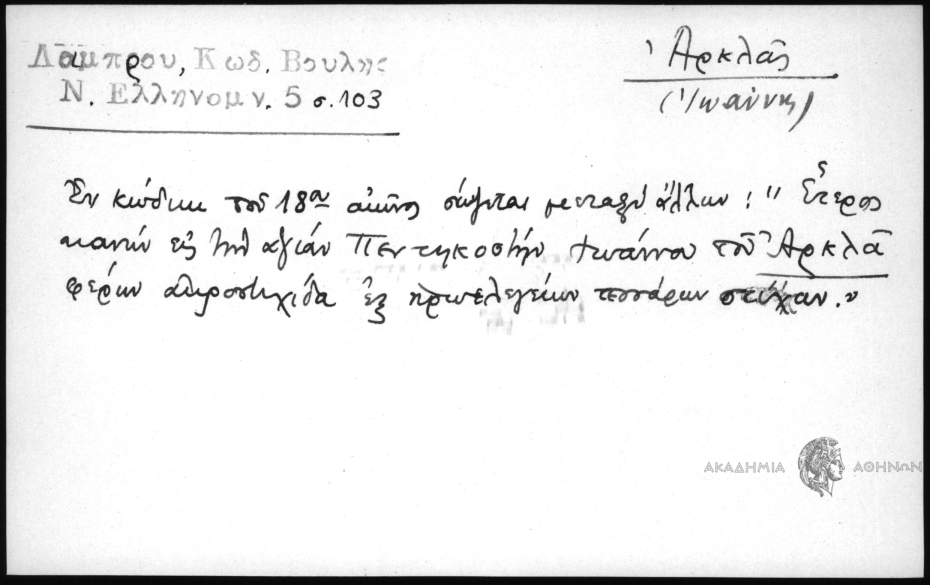 Λάμπρου, Κωδ. Βουλης
Ν. Ἑλληνομν. 5 σ. 103
Ἀρκλᾶς
(Ἰωάννης)
Ἐν κώδικι τοῦ 18ου αἰῶνος σώζεται μεταξὺ ἄλλων: "Ἕτερος
κανὼν εἰς τὴν ἁγίαν Πεντηκοστὴν Ἰωάννου τοῦ Ἀρκλᾶ
φέρων ἀκροστιχίδα ἐξ ἡρωελεγείων τεσσάρων στίχων."
ΑΚΑΔΗΜΙΑ ΑΘΗΝΩΝ